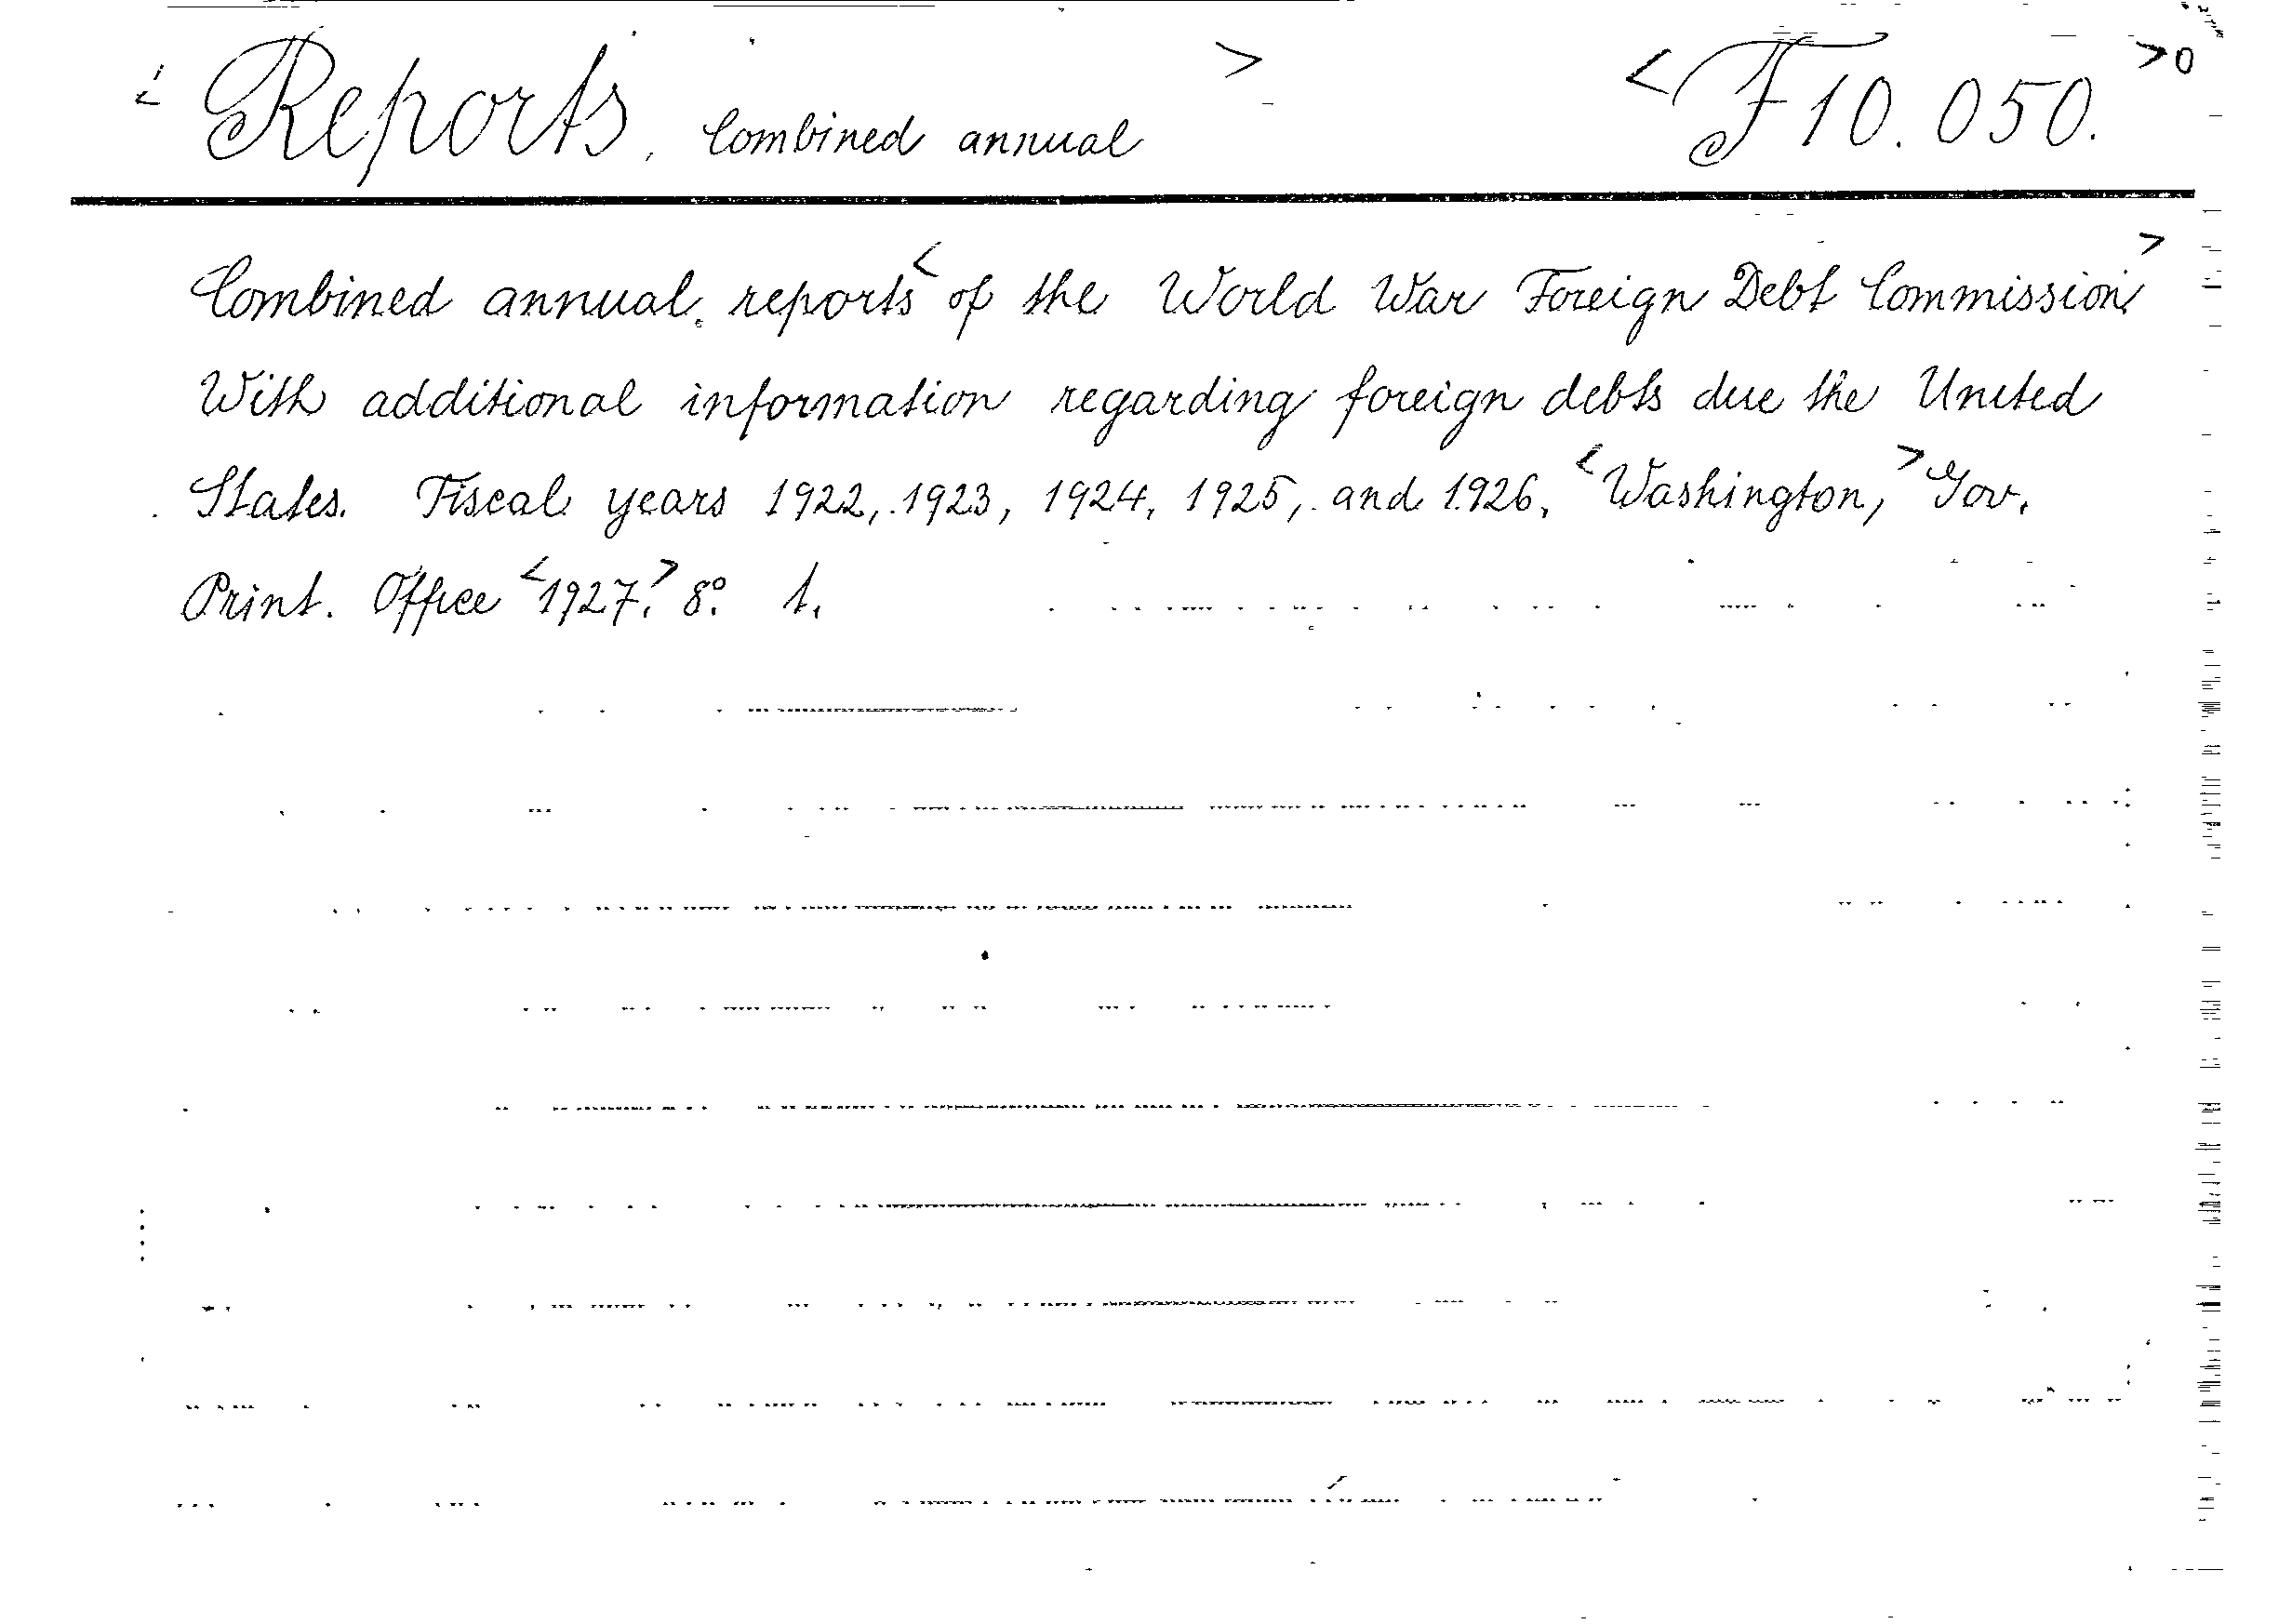 < Reports, Combined annual > < F 10.050. >0
Combined annual reports < of the World War Foreign Debt Commission. >
With additional information regarding foreign debts due the United
States. Fiscal years 1922, 1923, 1924, 1925, and 1926. < Washington, > Gov.
Print. Office < 1927. > 8°. 1.